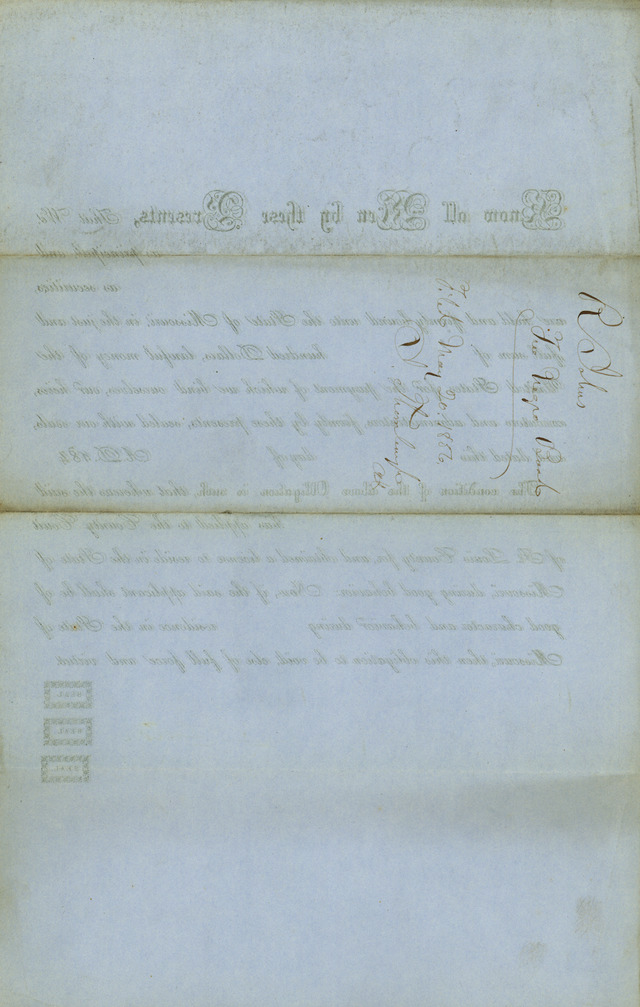 R Johns
Free Negro Bond
Filed May
1856
Clk
Know all Men by these Presents, That We
as principal, and
as securities,
are held and firmly bound unto the State of Missouri, in the just and
full sum of hundred Dollars, lawful money of the
United States, for the payment of which we bind ourselves, our heirs,
executors and administrators, firmly by these presents, sealed with our seals,
dated this day of A. D. 184
The condition of the above Obligation is such, that whereas the said
has applied to the County Court
of St. Louis County for, and obtained a license to reside in the State of
Missouri, during good behavior: Now, if the said applicant shall be of
good character and behavior during residence in the State of
Missouri, then this obligation to be void, else of full force and virtue.
SEAL
SEAL
SEAL